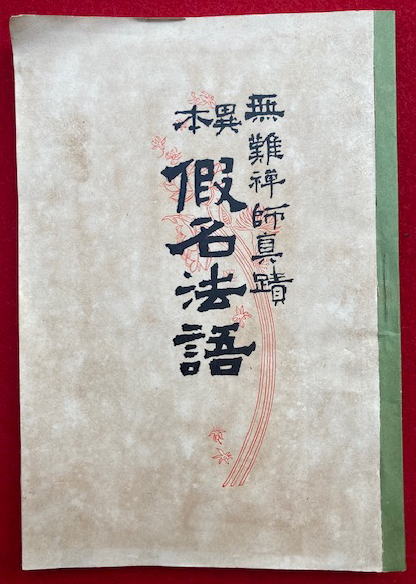 無難禅師真蹟
異本
假名法語